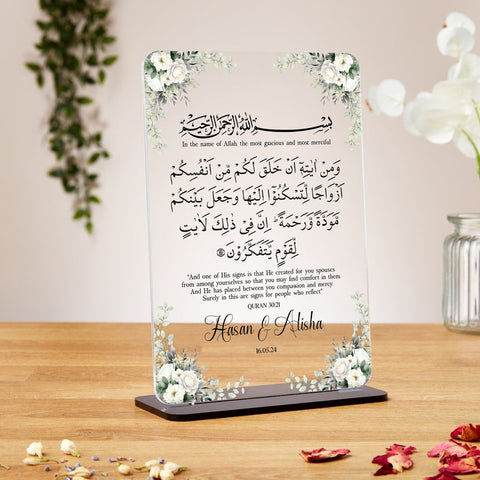 بِسْمِ اللهِ الرَّحْمٰنِ الرَّحِيْمِ
In the name of Allah, the most gracious and most merciful
وَمِنْ اٰيٰتِهٖٓ اَنْ خَلَقَ لَكُمْ مِّنْ اَنْفُسِكُمْ
اَزْوَاجًا لِّتَسْكُنُوْٓا اِلَيْهَا وَجَعَلَ بَيْنَكُمْ
مَّوَدَّةً وَّرَحْمَةً ؕ اِنَّ فِيْ ذٰلِكَ لَاٰيٰتٍ
لِّقَوْمٍ يَّتَفَكَّرُوْنَ
"And one of His signs is that He created for you spouses
from among yourselves so that you may find comfort in them.
And He has placed between you compassion and mercy.
Surely in this are signs for people who reflect"
QURAN 30:21
Hasan & Alisha
16.05.24